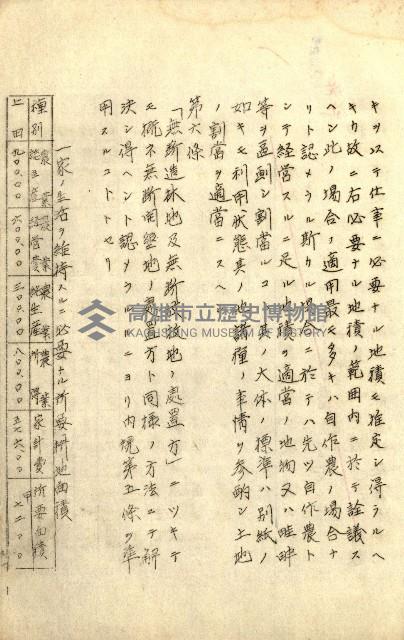 キヲ以テ仕事ニ必要ナル地積ヲ推定シ得ラルヘ
キカ故ニ右必要ナル地積ノ範囲内ニ於テ詮議ス
ヘシ此ノ場合ノ適用最モ多キハ自作農ノ場合ナ
リト認メラル斯カル場合ニ於テハ先ツ自作農ト
シテ経営スルニ足ル地積ヲ適当ノ地物又ハ畦畔
等ヲ区劃シ割当ルコト其ノ大体ノ標準ハ別紙ノ
如キモ利用状態其ノ他諸種ノ事情ヲ参酌シ土地
ノ割当ヲ適当ニスヘシ
第六条
「無断造林地及無断開墾地ノ處置方」ニツキテ
モ概ネ無断開墾地ノ處置方ト同様ノ方法ニテ解
決シ得ヘシト認メラルルニヨリ内規第五條ヲ準
用スルコトトセリ
一家ノ生活ヲ維持スルニ必要ナル所要耕地面積
種別 農業 農業経営費 農業純生産 農業所得 家計費 所要面積
上田 九〇〇.〇〇 六〇〇.〇〇 三〇〇.〇〇 八〇〇.〇〇 五七六.〇〇 甲 七二〇〇
高雄市立歷史博物館
KAOHSIUNG MUSEUM OF HISTORY